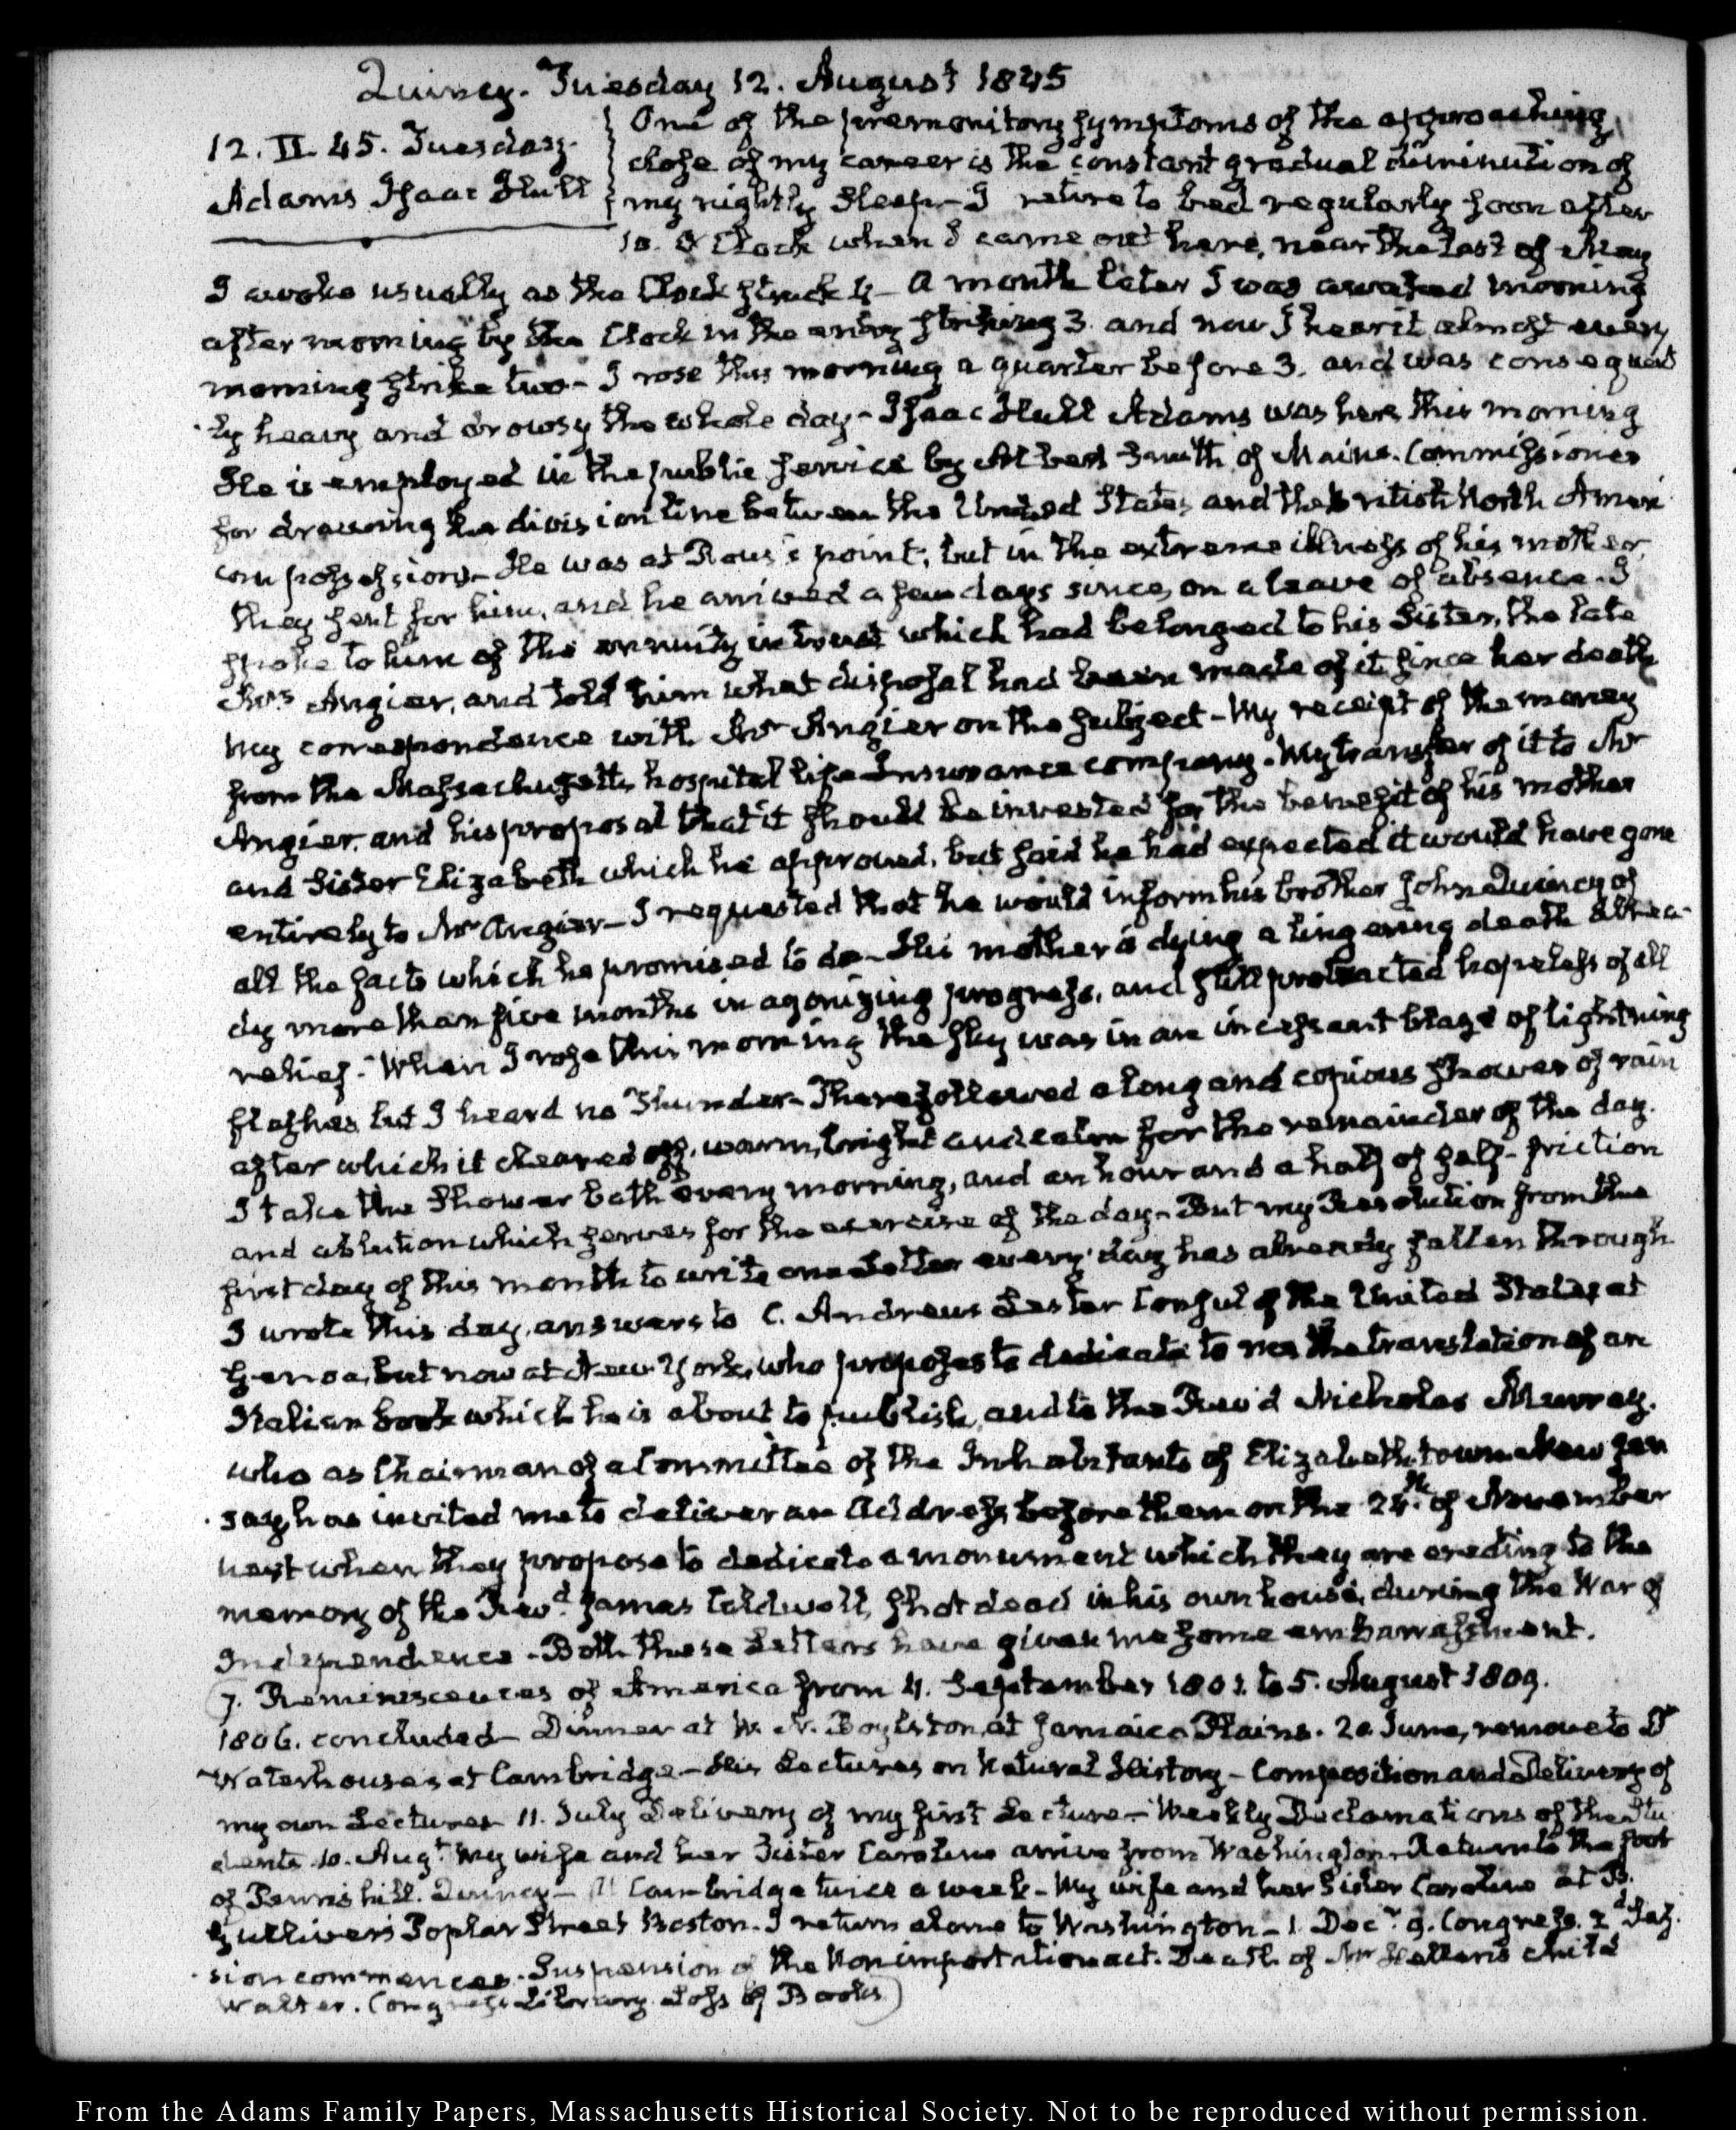 Quincy. Tuesday 12. August 1845
12. II. 45. Tuesday.
Adams Isaac Hull
One of the premonitory symptoms of the approaching
close of my career is the constant gradual diminution of
my nightly sleep— I retire to bed regularly soon after
10. O'Clock when I came out here, near the last of May
I awoke usually as the Clock struck 4— A month later I was awaked morning
after morning by the Clock in the entry striking 3. and now I hear it almost every
morning strike two— I rose this morning a quarter before 3. and was consequent
ly heavy and drowsy the whole day— Isaac Hull Adams was here this morning
He is employed in the public service by Albert Smith of Maine. Commissioner
for drawing the division line between the United States and the british North Ameri
can possessions— He was at Rouse's point; but in the extreme illness of his mother,
they sent for him, and he arrived a few days since, on a leave of absence. I
spoke to him of the annuity in trust which had belonged to his Sister, the late
Mrs Angier, and told him what disposal had been made of it since her death
my correspondence with Mr Angier on the subject— My receipt of the money
from the Massachusetts hospital life Insurance company. My transfer of it to Mr
Angier. and his proposal that it should be invested for the benefit of his mother
and Sister Elizabeth which he approved, but said he had expected it would have gone
entirely to Mr Angier— I requested that he would inform his brother John Quincy of
all the facts which he promised to do— His mother is dying a lingering death alrea
dy more than five months in agonizing progress, and still protracted hopeless of all
relief.— When I rose this morning the sky was in an incessant blaze of lightning
flashes but I heard no Thunder— There followed a long and copious shower of rain
after which it cleared off, warm, bright and calm for the remainder of the day.
I take the shower bath every morning, and an hour and a half of self-friction
and ablution which serves for the exercise of the day— But my Resolution from the
first day of this month to write one Letter every day has already fallen through
I wrote this day, answers to C. Andrews Lester Consul of the United States at
Genoa, but now at New York, who proposes to dedicate to me the translation of an
Italian book which he is about to publish, and to the Revd Nicholas Murray.
who as Chairman of a Committee of the Inhabitants of Elizabeth town New Jer
sey, has invited me to deliver an Address before them on the 24th of November
next when they propose to dedicate a monument which they are erecting to the
memory of the Revd. James Caldwell, shot dead in his own house, during the War of
Independence. Both these Letters have given me some embarrassment.
(7. Reminiscences of America from 4. September 1801. to 5. August 1809.
1806. concluded— Dinner at W. N. Boylston, at Jamaica Plains. 20. June, remove to Dr
Waterhouse's at Cambridge— His Lectures on Natural History— Composition and Delivery of
my own Lectures 11. July Delivery of my first Lecture— Weekly Declamations of the Stu
dents 10. Augt. My wife and her Sister Caroline arrive from Washington— Return to the foot
of Penns hill. Quincy— Cambridge twice a week— My wife and her Sister Caroline at B.
Gullivers Poplar Street Boston. I return alone to Washington— 1. Decr. 9. Congress. 2d Ses.
sion commences. Suspension of the Non importation act. Death of Mr Hellen's child
Walter. Congress Library. Loss of Books)
From the Adams Family Papers, Massachusetts Historical Society. Not to be reproduced without permission.